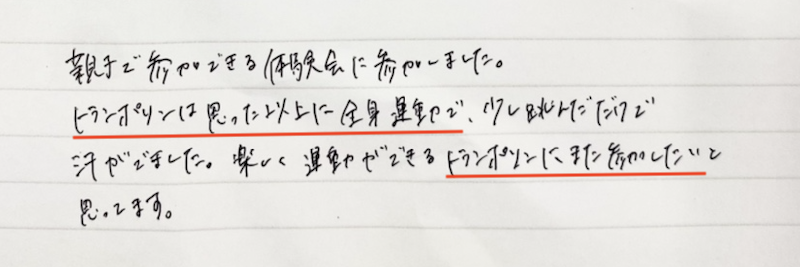 親子で参加できる体験会に参加しました。
トランポリンは思った以上に全身運動で、少し跳んだだけで
汗がでました。楽しく運動ができるトランポリンにまた参加したいと
思ってます。